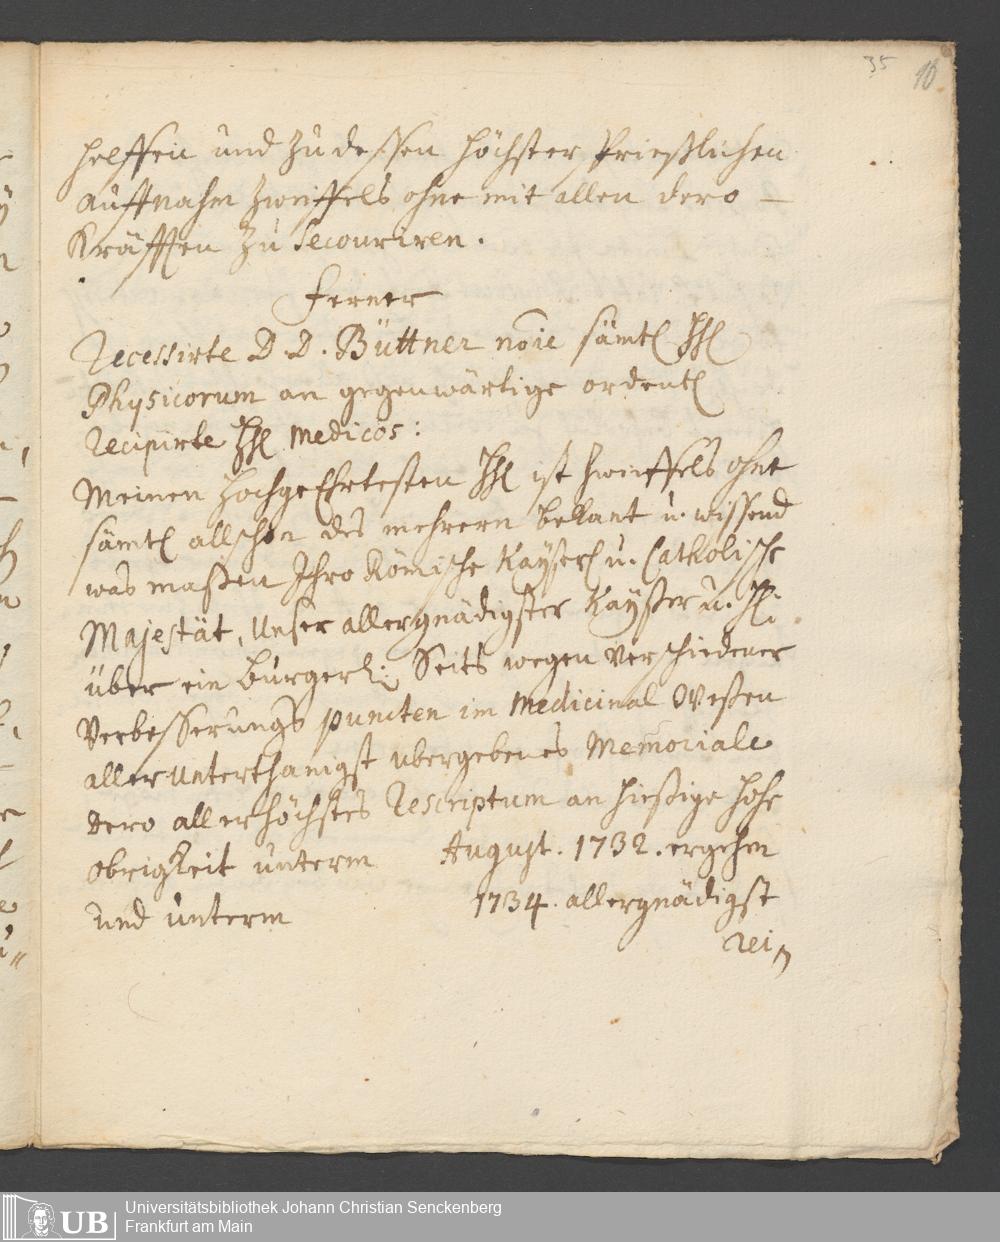 35 10
helffen und zu dessen höchster Prießlichen
auffnahm zweiffels ohne mit allen dero
Kräfften zu Secouriren.
Ferner
Recessirte D. D. Büttner noie sämtl HH
Physicorum an gegenwärtige ordentl
recipirte HH Medicos:
Meinen HochgeEhrtesten HH ist zweiffels ohne
sämtl allschon des mehrern bekant u. wissend
was maßen Ihro Römische Kayserl u. Catholische
Majestät, Unser allergnädigster Kayßer u. H.
über ein bürgerl: Seits wegen verschiedener
Verbesserungs puncten im Medicinal Weßen
allerunterthänigst ubergebenes Memoriale
dero allerhöchstes Rescriptum an hießige hohe
obrigkeit unterm August. 1732. ergehen
und unterm 1734. allergnädigst
rei
UB
Universitätsbibliothek Johann Christian Senckenberg
Frankfurt am Main